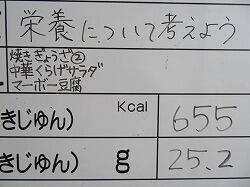 栄養について考えよう
焼きぎょうざ②
中華くらげサラダ
マーボー豆腐
Kcal
きじゅん) 655
きじゅん) g 25.2